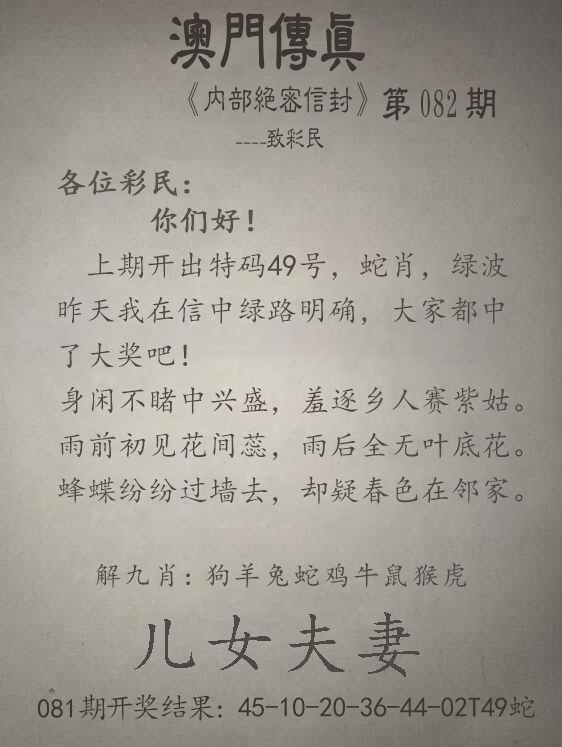 澳門傳眞
《内部絕密信封》第082期
----致彩民
各位彩民：
你们好！
上期开出特码49号，蛇肖，绿波
昨天我在信中绿路明确，大家都中
了大奖吧！
身闲不睹中兴盛，羞逐乡人赛紫姑。
雨前初见花间蕊，雨后全无叶底花。
蜂蝶纷纷过墙去，却疑春色在邻家。
解九肖：狗羊兔蛇鸡牛鼠猴虎
儿女夫妻
081期开奖结果：45-10-20-36-44-02T49蛇